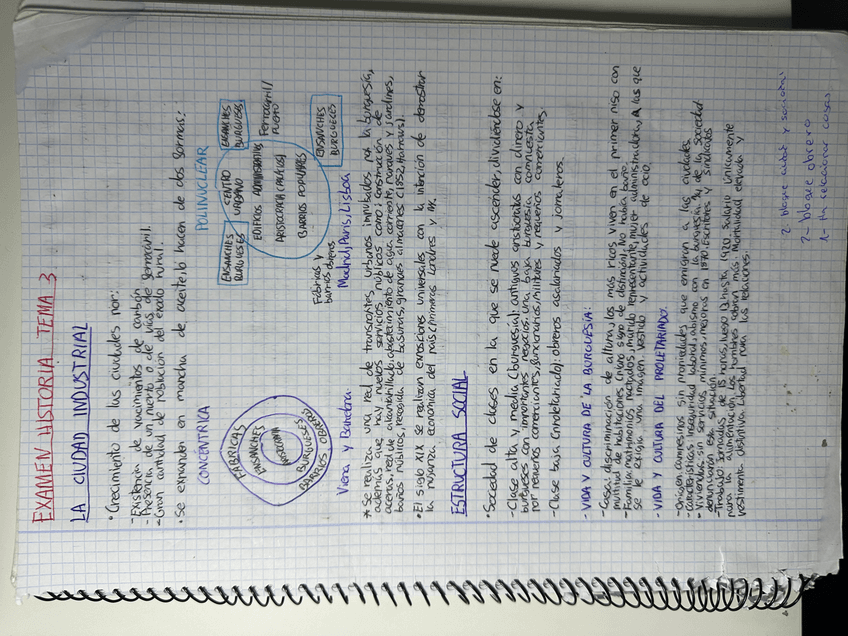 EXAMEN HISTORIA TEMA 3
LA CIUDAD INDUSTRIAL
• Crecimiento de las ciudades por:
- Existencia de yacimientos de carbón.
- Presencia de un puerto o de vías de ferrocarril.
- Gran cantidad de población del exodo rural.
• Se expanden en mancha de aceite, lo hacen de dos formas:
CONCENTRICA
FÁBRICAS
ENSANCHES
BURGUESES
BARRIOS OBREROS
Viena y Barcelona
POLINUCLEAR
ENSANCHES
BURGUESES
CENTRO
URBANO
ENSANCHES
BURGUESES
EDIFICIOS ADMINISTRATIVOS
ARISTOCRACIA (PALACIOS)
BARRIOS POPULARES
Ferrocarril/
puerto
Fábricas y
barrios obreros
ENSANCHES
BURGUECES
Madrid, París, Lisboa
* Se realiza una red de transportes urbanos impulsados por la burguesía,
además que hay nuevos servicios públicos como: construcción de
aceras, red de alcantarillado, abastecimiento de agua corriente, parques y jardines,
baños públicos, recogida de basuras, grandes almacenes (1852,
• El siglo XIX se realizan exposiciones universales con la intención de demostrar
la potencia económica del país (primeras Londres y
ESTRUCTURA SOCIAL
• Sociedad de clases en la que se puede ascender, dividiéndose en:
- Clase alta y media (burguesía): antiguos aristócratas con dinero y
burgueses con importantes negocios. Una baja burguesía compuesta
por pequeños comerciantes, funcionarios, militares y pequeños comerciantes.
- Clase baja (proletariado): obreros asalariados y jornaleros.
- VIDA Y CULTURA DE LA BURGUESÍA:
- Casa: discriminación de altura, los más ricos viven en el primer piso con
multitud de habitaciones como signo de distinción. No había baño.
- Familia: matrimonios pactados, marido representante, mujer administradora, a las que
se le exigía una imagen, vestido y actividades de ocio.
- VIDA Y CULTURA DEL PROLETARIADO:
- Origen: campesinos sin propiedades que emigran a las ciudades
- Características: inseguridad laboral, abismo con la burguesía y de la sociedad
- Viviendas sin servicios mínimos, mejoras en 1870. Escritores y sindicatos
denunciaron esta situación.
- Trabajo: jornadas de 15 horas, luego 12 hasta 1920. salario únicamente
para alimentación. Los hombres cobran más. Mortalidad elevada y
vestimenta distintiva. Libertad para las relaciones.
2- bloque cultur y sociedad
2- bloque obrero
1- tía relacionar cosas